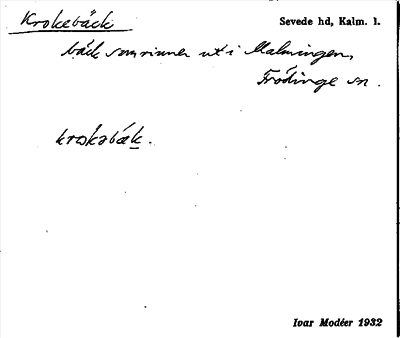 Krokebäck
Sevede hd, Kalm. l.
bäck som rinner ut i Malmingen,
Frödinge sn.
krokəbæk.
Ivar Modéer 1932